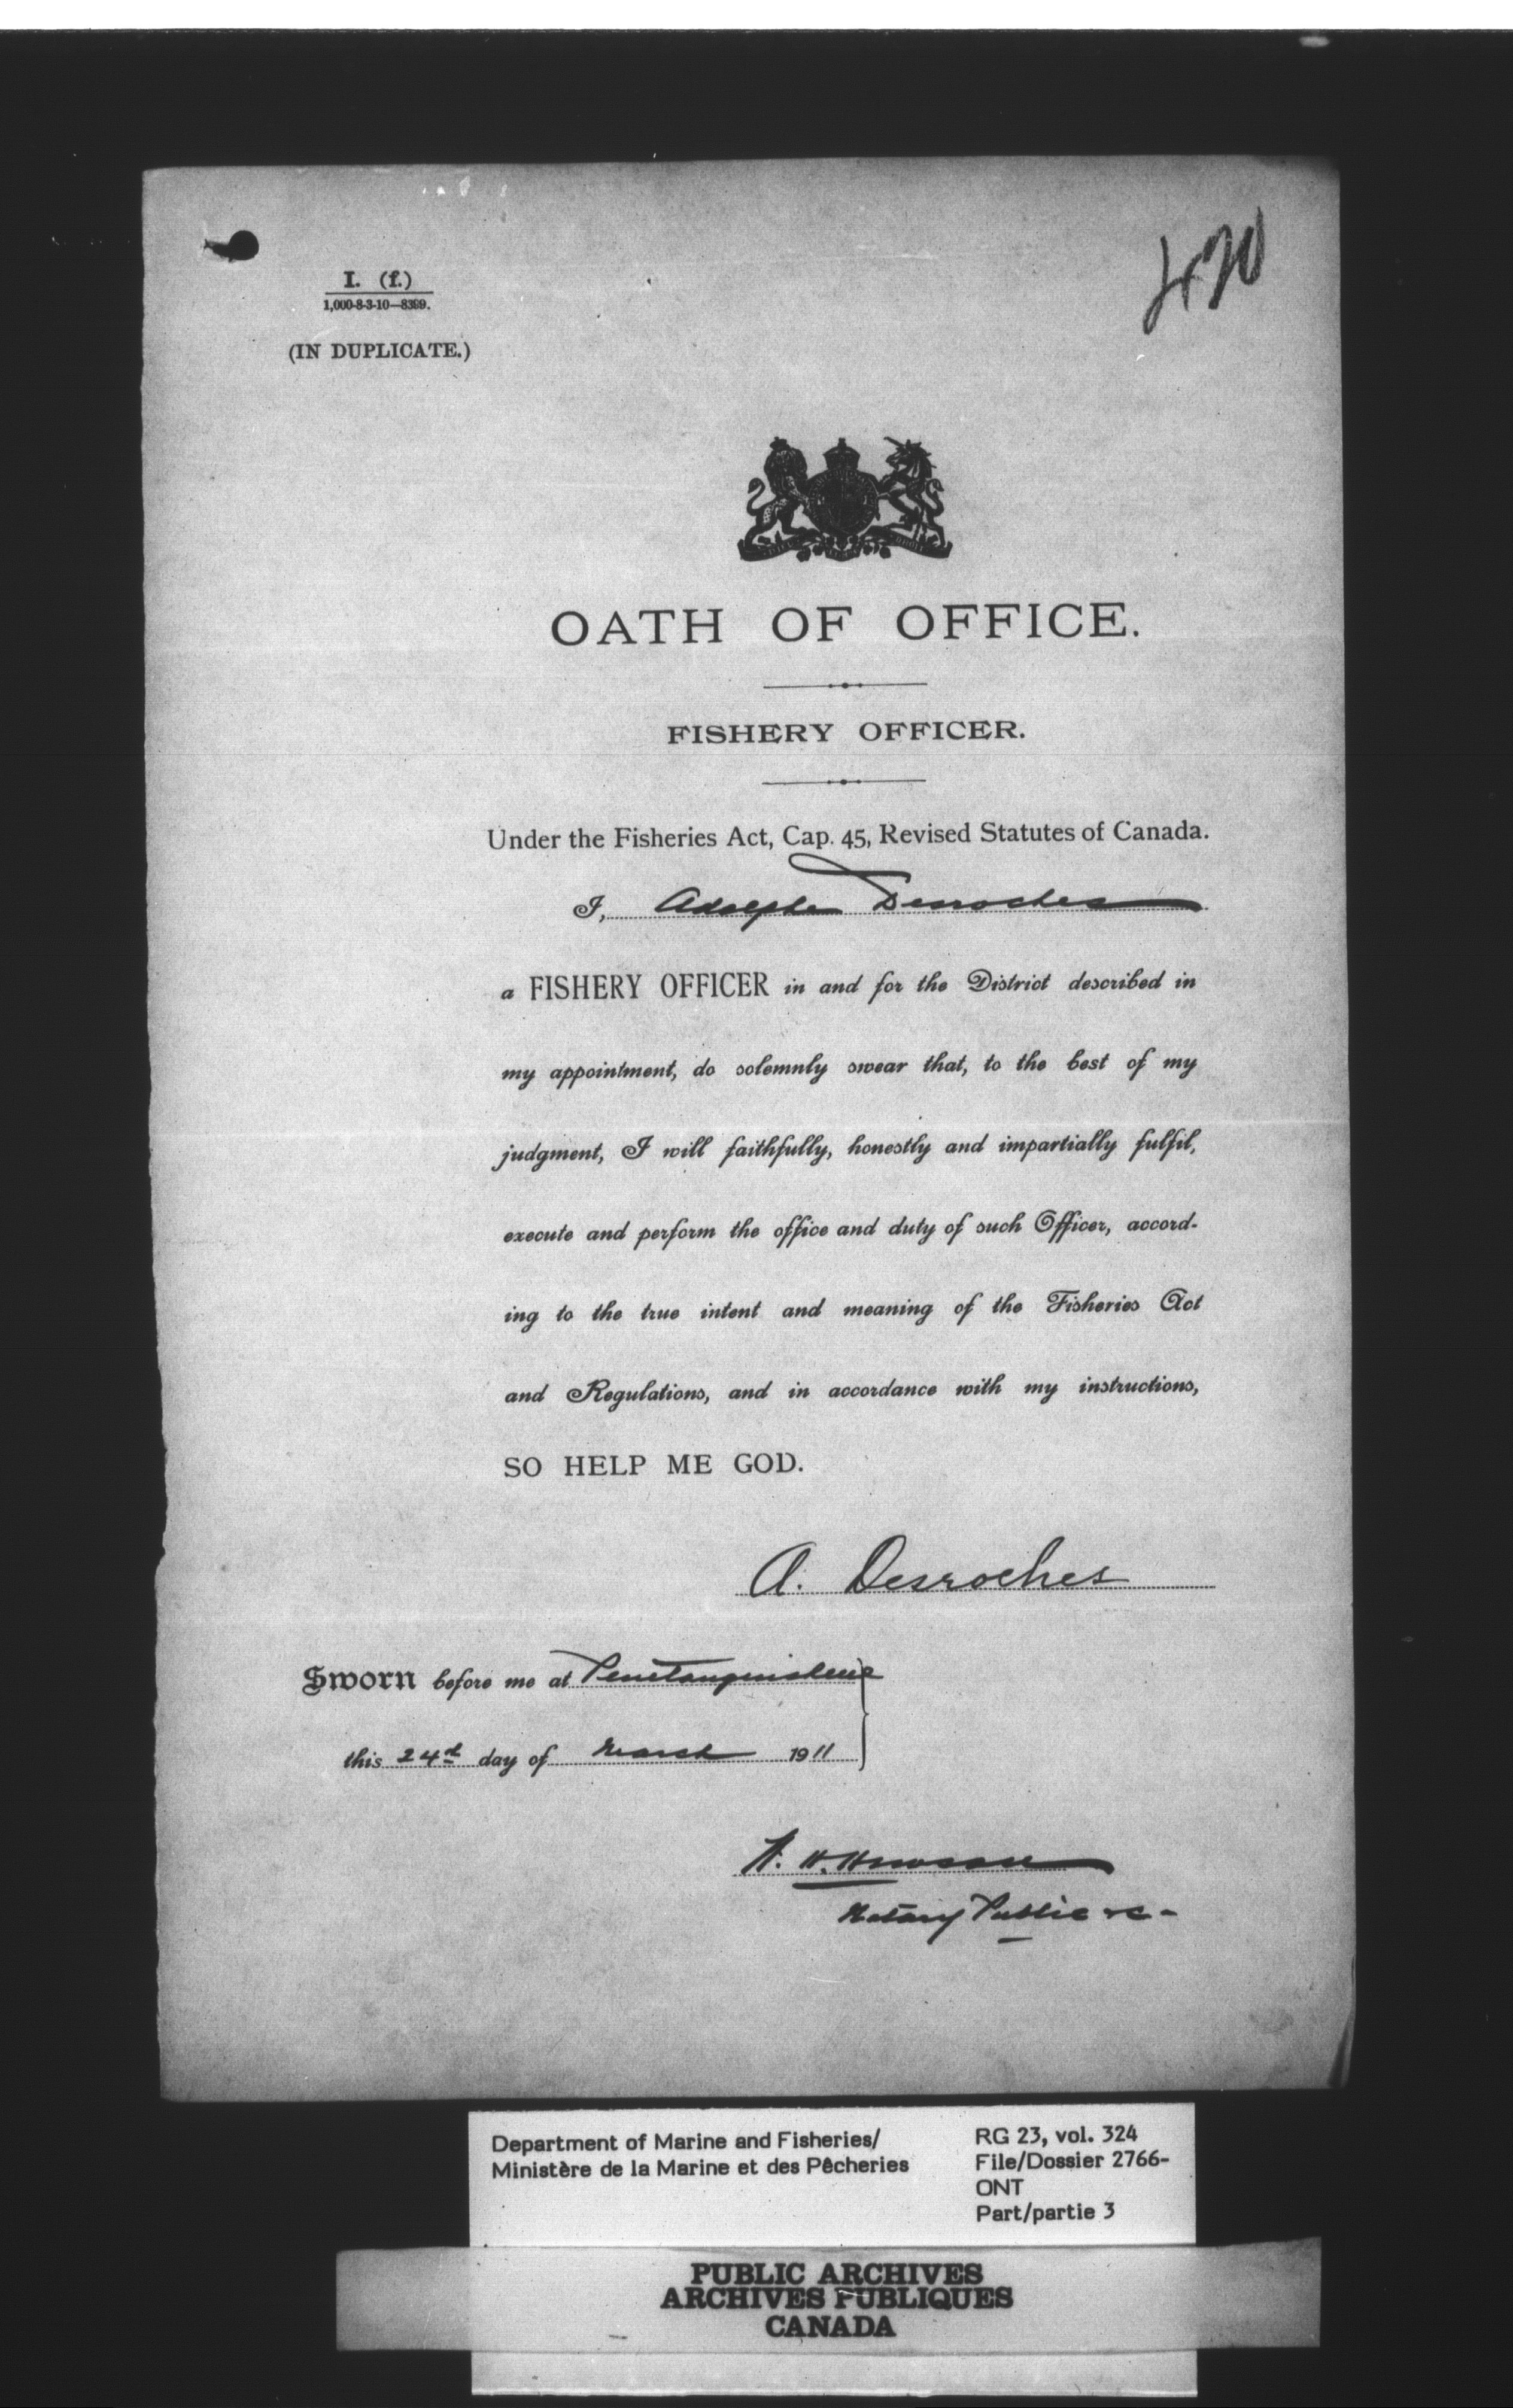 470
I. (f.)
1,000-8-3-10—8399.
(IN DUPLICATE.)
OATH OF OFFICE.
FISHERY OFFICER.
Under the Fisheries Act, Cap. 45, Revised Statutes of Canada.
I, Adolphe Desroches
a FISHERY OFFICER in and for the District described in
my appointment, do solemnly swear that, to the best of my
judgment, I will faithfully, honestly and impartially fulfil,
execute and perform the office and duty of such Officer, accord-
ing to the true intent and meaning of the Fisheries Act
and Regulations, and in accordance with my instructions,
SO HELP ME GOD.
A. Desroches
Sworn before me at Penetanguishene
this 24th day of March 1911
H. Hewson
Notary Public &c -
Department of Marine and Fisheries/
Ministère de la Marine et des Pêcheries
RG 23, vol. 324
File/Dossier 2766-
ONT
Part/partie 3
PUBLIC ARCHIVES
ARCHIVES PUBLIQUES
CANADA